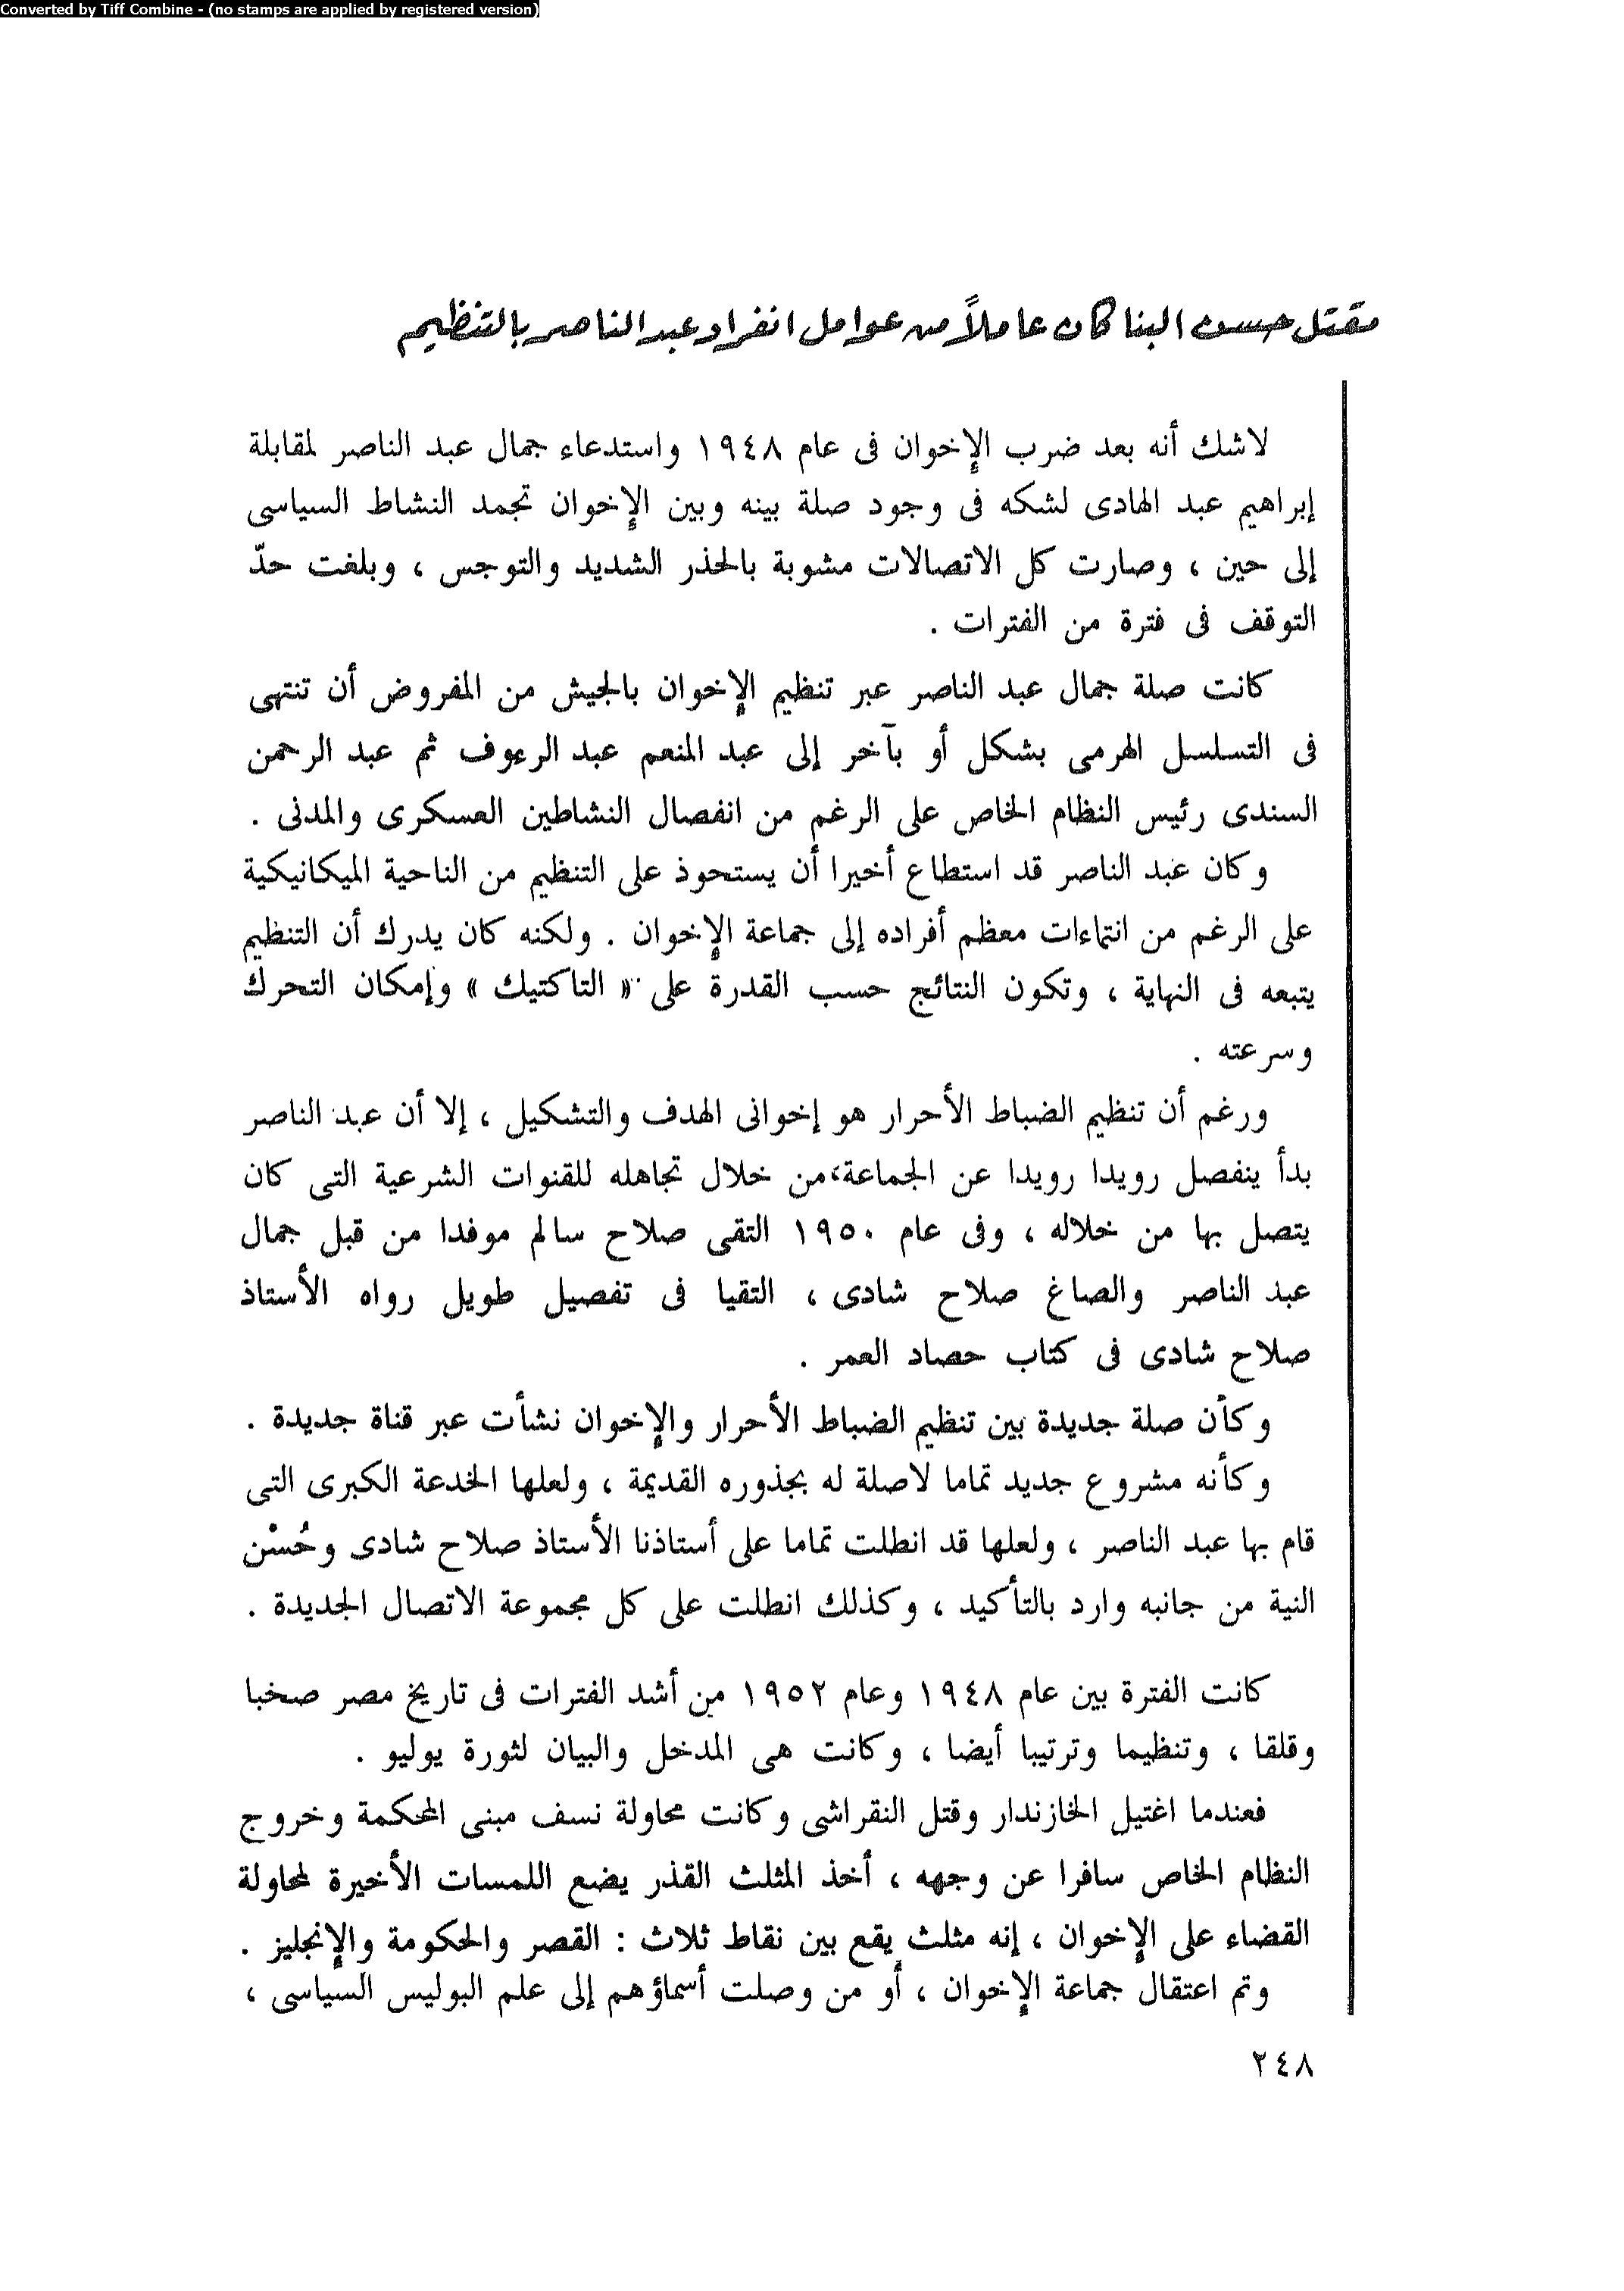 Converted by Tiff Combine - (no stamps are applied by registered version)
مقتل حسن البنا كان عاملاً من عوامل انفراد عبد الناصر بالتنظيم
لاشك أنه بعد ضرب الإخوان فى عام ١٩٤٨ واستدعاء جمال عبد الناصر لمقابلة
إبراهيم عبد الهادى لشكه فى وجود صلة بينه وبين الإخوان تجمد النشاط السياسى
إلى حين ، وصارت كل الاتصالات مشوبة بالحذر الشديد والتوجس ، وبلغت حدّ
التوقف فى فترة من الفترات .
كانت صلة جمال عبد الناصر عبر تنظيم الإخوان بالجيش من المفروض أن تنتهى
فى التسلسل الهرمى بشكل أو بآخر إلى عبد المنعم عبد الرءوف ثم عبد الرحمن
السندى رئيس النظام الخاص على الرغم من انفصال النشاطين العسكرى والمدنى .
وكان عبد الناصر قد استطاع أخيرا أن يستحوذ على التنظيم من الناحية الميكانيكية
على الرغم من انتماءات معظم أفراده إلى جماعة الإخوان . ولكنه كان يدرك أن التنظيم
يتبعه فى النهاية ، وتكون النتائج حسب القدرة على « التاكتيك » وإمكان التحرك
وسرعته .
ورغم أن تنظيم الضباط الأحرار هو إخوانى الهدف والتشكيل ، إلا أن عبد الناصر
بدأ ينفصل رويدا رويدا عن الجماعة، من خلال تجاهله للقنوات الشرعية التى كان
يتصل بها من خلاله ، وفى عام ١٩٥٠ التقى صلاح سالم موفدا من قبل جمال
عبد الناصر والصاغ صلاح شادى ، التقيا فى تفصيل طويل رواه الأستاذ
صلاح شادى فى كتاب حصاد العمر .
وكأن صلة جديدة بين تنظيم الضباط الأحرار والإخوان نشأت عبر قناة جديدة .
وكأنه مشروع جديد تماما لاصلة له بجذوره القديمة ، ولعلها الخدعة الكبرى التى
قام بها عبد الناصر ، ولعلها قد انطلت تماما على أستاذنا الأستاذ صلاح شادى وحُسْن
النية من جانبه وارد بالتأكيد ، وكذلك انطلت على كل مجموعة الاتصال الجديدة .
كانت الفترة بين عام ١٩٤٨ وعام ١٩٥٢ من أشد الفترات فى تاريخ مصر صخبا
وقلقا ، وتنظيما وترتيبا أيضا ، وكانت هى المدخل والبيان لثورة يوليو .
فعندما اغتيل الخازندار وقتل النقراشى وكانت محاولة نسف مبنى المحكمة وخروج
النظام الخاص سافرا عن وجهه ، أخذ المثلث القذر يضع اللمسات الأخيرة لمحاولة
القضاء على الإخوان ، إنه مثلث يقع بين نقاط ثلاث : القصر والحكومة والإنجليز .
وتم اعتقال جماعة الإخوان ، أو من وصلت أسماؤهم إلى علم البوليس السياسى ،
٢٤٨